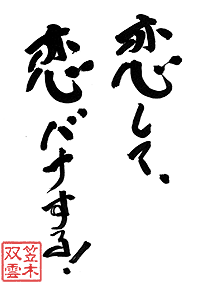 恋して、
恋バナする!
笠木
双雲